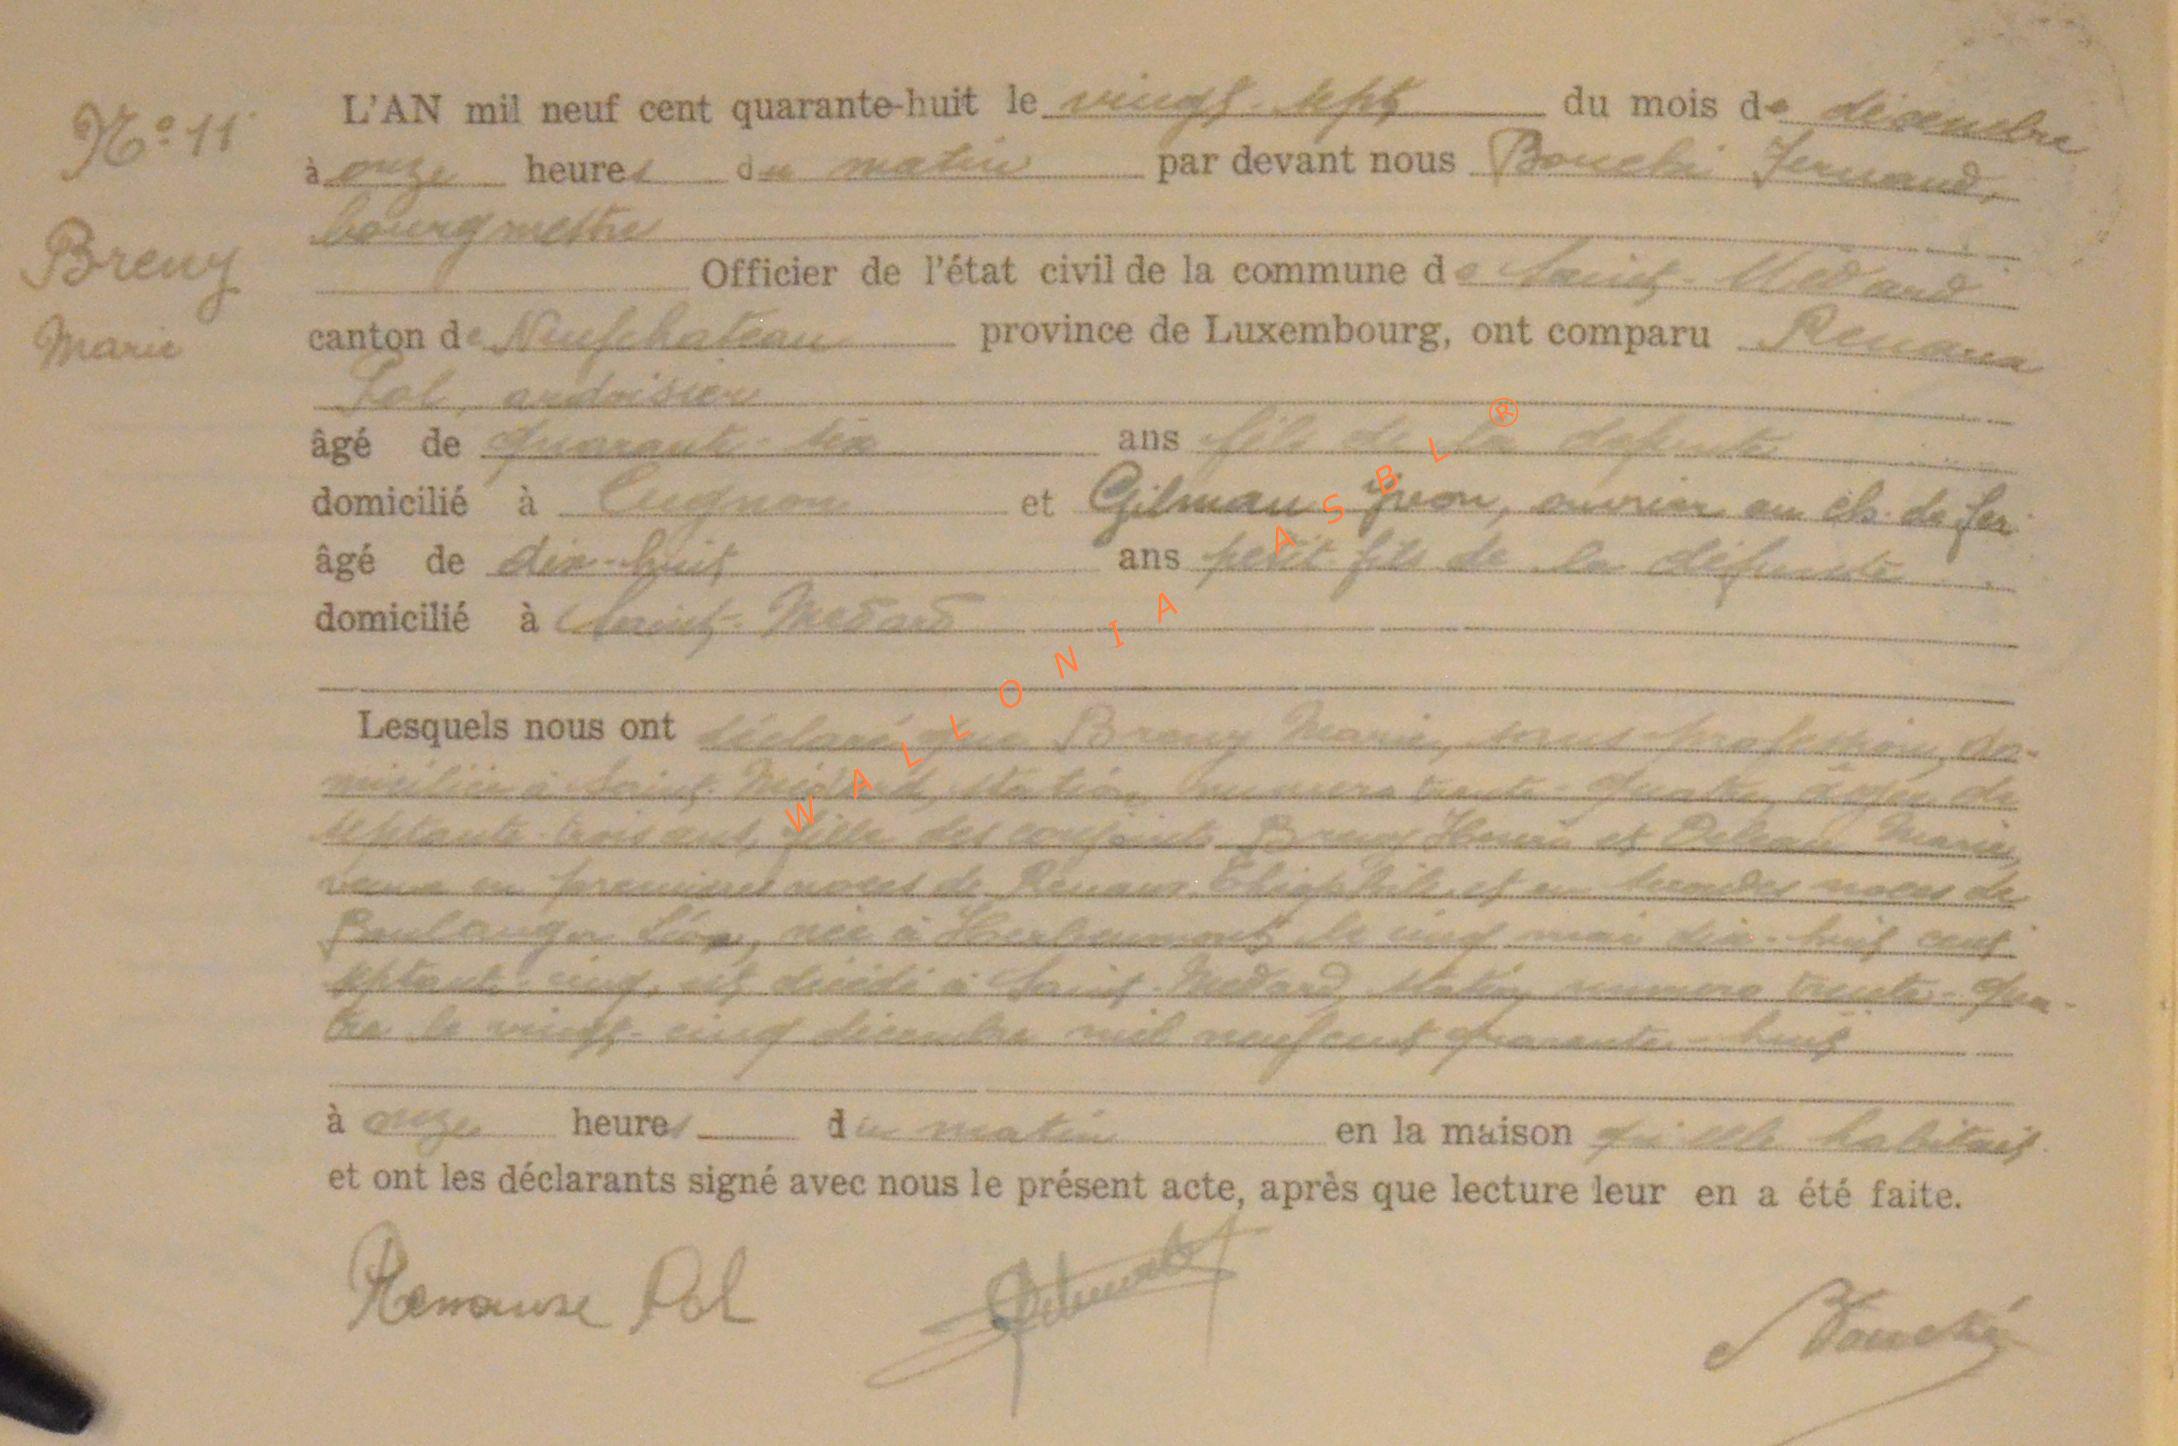 N° 11
Breny
Marie
L'AN mil neuf cent quarante-huit le vingt-sept du mois de décembre
à onze heures du matin par devant nous Bouché Fernand,
bourgmestre
Officier de l'état civil de la commune de Saint-Médard
canton de Neufchateau province de Luxembourg, ont comparu
Pol, ardoisier
âgé de quarante-six ans fils de la défunte
domicilié à Cugnon et Yvon, ouvrier au ch. de fer
âgé de dix-huit ans petit-fils de la défunte
domicilié à Saint-Médard
Lesquels nous ont déclaré que Breny Marie, sans profession, do-
miciliée à Saint-Médard, station numéro trente-quatre, âgée de
septante-trois ans, fille des conjoints Breny Henri et Marie,
veuve en premières noces de et en secondes noces de
Boulanger Léon, née à Herbeumont, le cinq mai dix-huit cent
septante-cinq, est décédé à Saint-Médard, station numéro trente-qua-
tre le vingt-cinq décembre mil neuf cent quarante-huit
à onze heures du matin en la maison qu'elle habitait
et ont les déclarants signé avec nous le présent acte, après que lecture leur en a été faite.
Pol
Bouché
WALLONIA ASBL ®